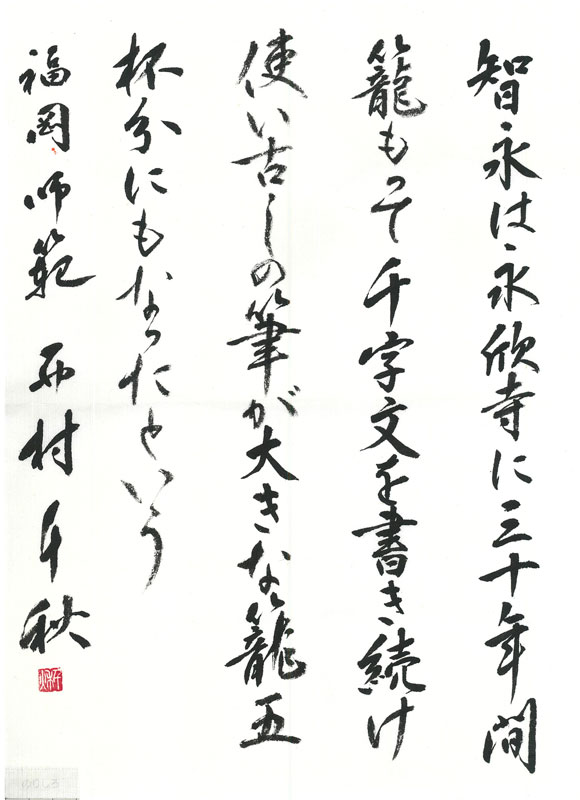 智永は永欣寺に三十年間
籠もって千字文を書き続け
使い古しの筆が大きな籠五
杯分にもなったという
福岡 師範 西村千秋